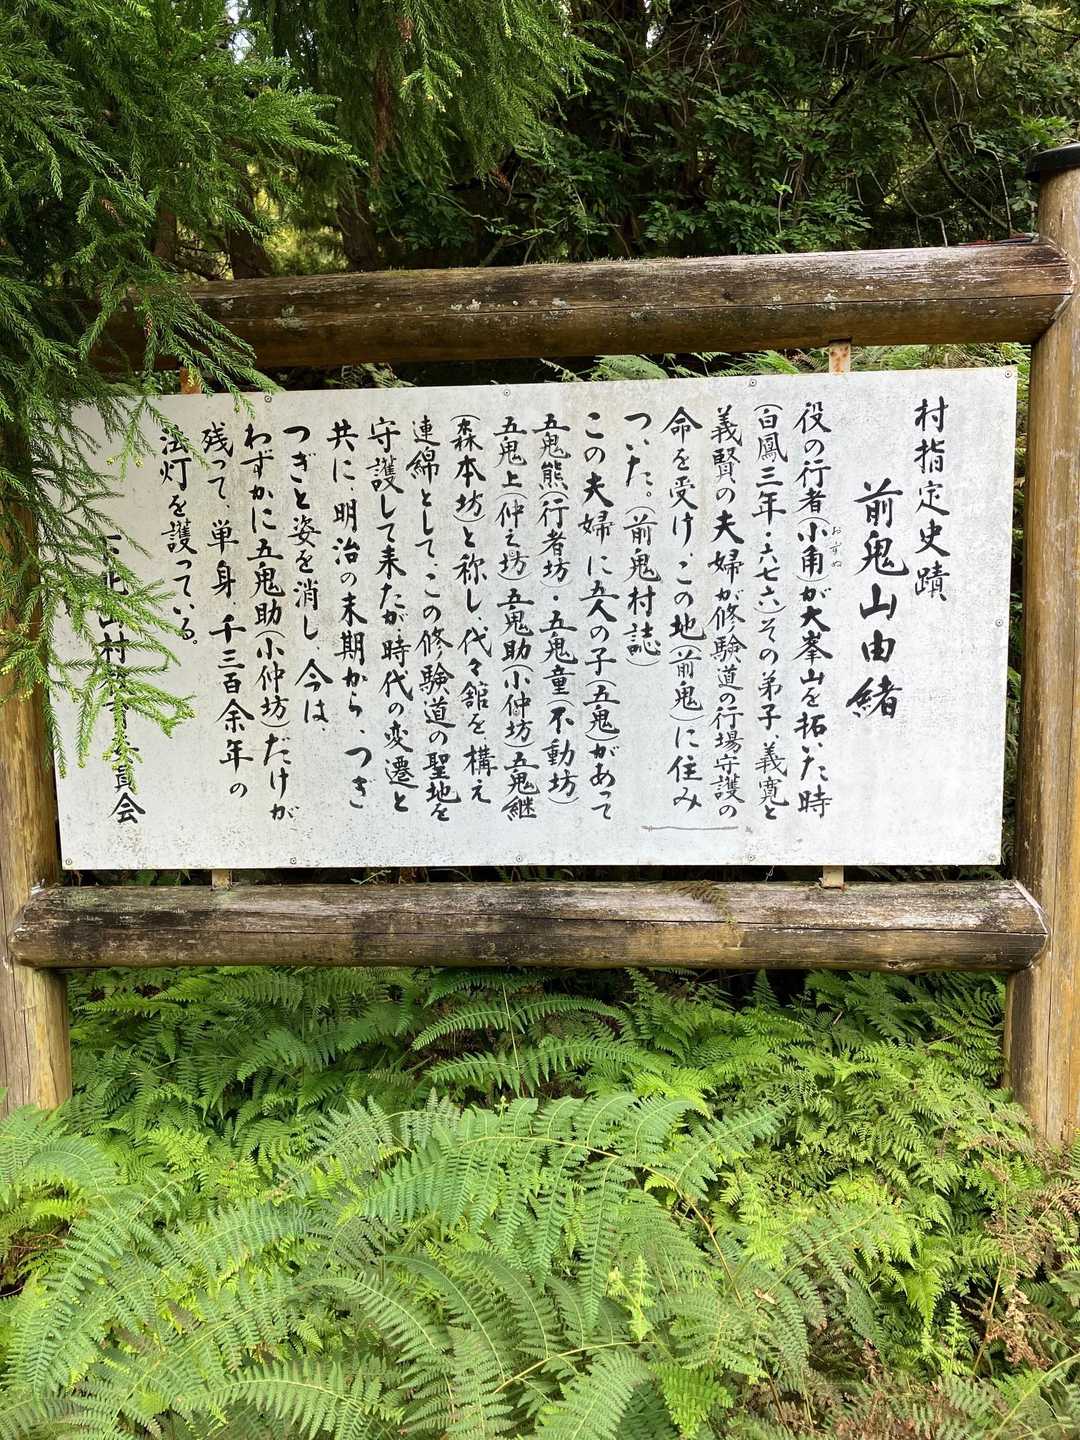 村指定史蹟
前鬼山由緒
役の行者(小角)が大峯山を拓いた時
おずぬ
(白鳳三年・六七六)その弟子、義寛と
義賢の夫婦が修験道の行場守護の
命を受け、この地(前鬼)に住み
ついた。(前鬼村誌)
この夫婦に五人の子(五鬼)があって
五鬼熊(行者坊)・五鬼童(不動坊)
五鬼上(仲之坊)五鬼助(小仲坊)五鬼継
(森本坊)と称し、代々舘を構え
連綿として、この修験道の聖地を
守護して来たが時代の変遷と
共に、明治の末期から、つぎ
つぎと姿を消し、今は、
わずかに五鬼助(小仲坊)だけが
残って、単身、千三百余年の
法灯を護っている。
山村 員会